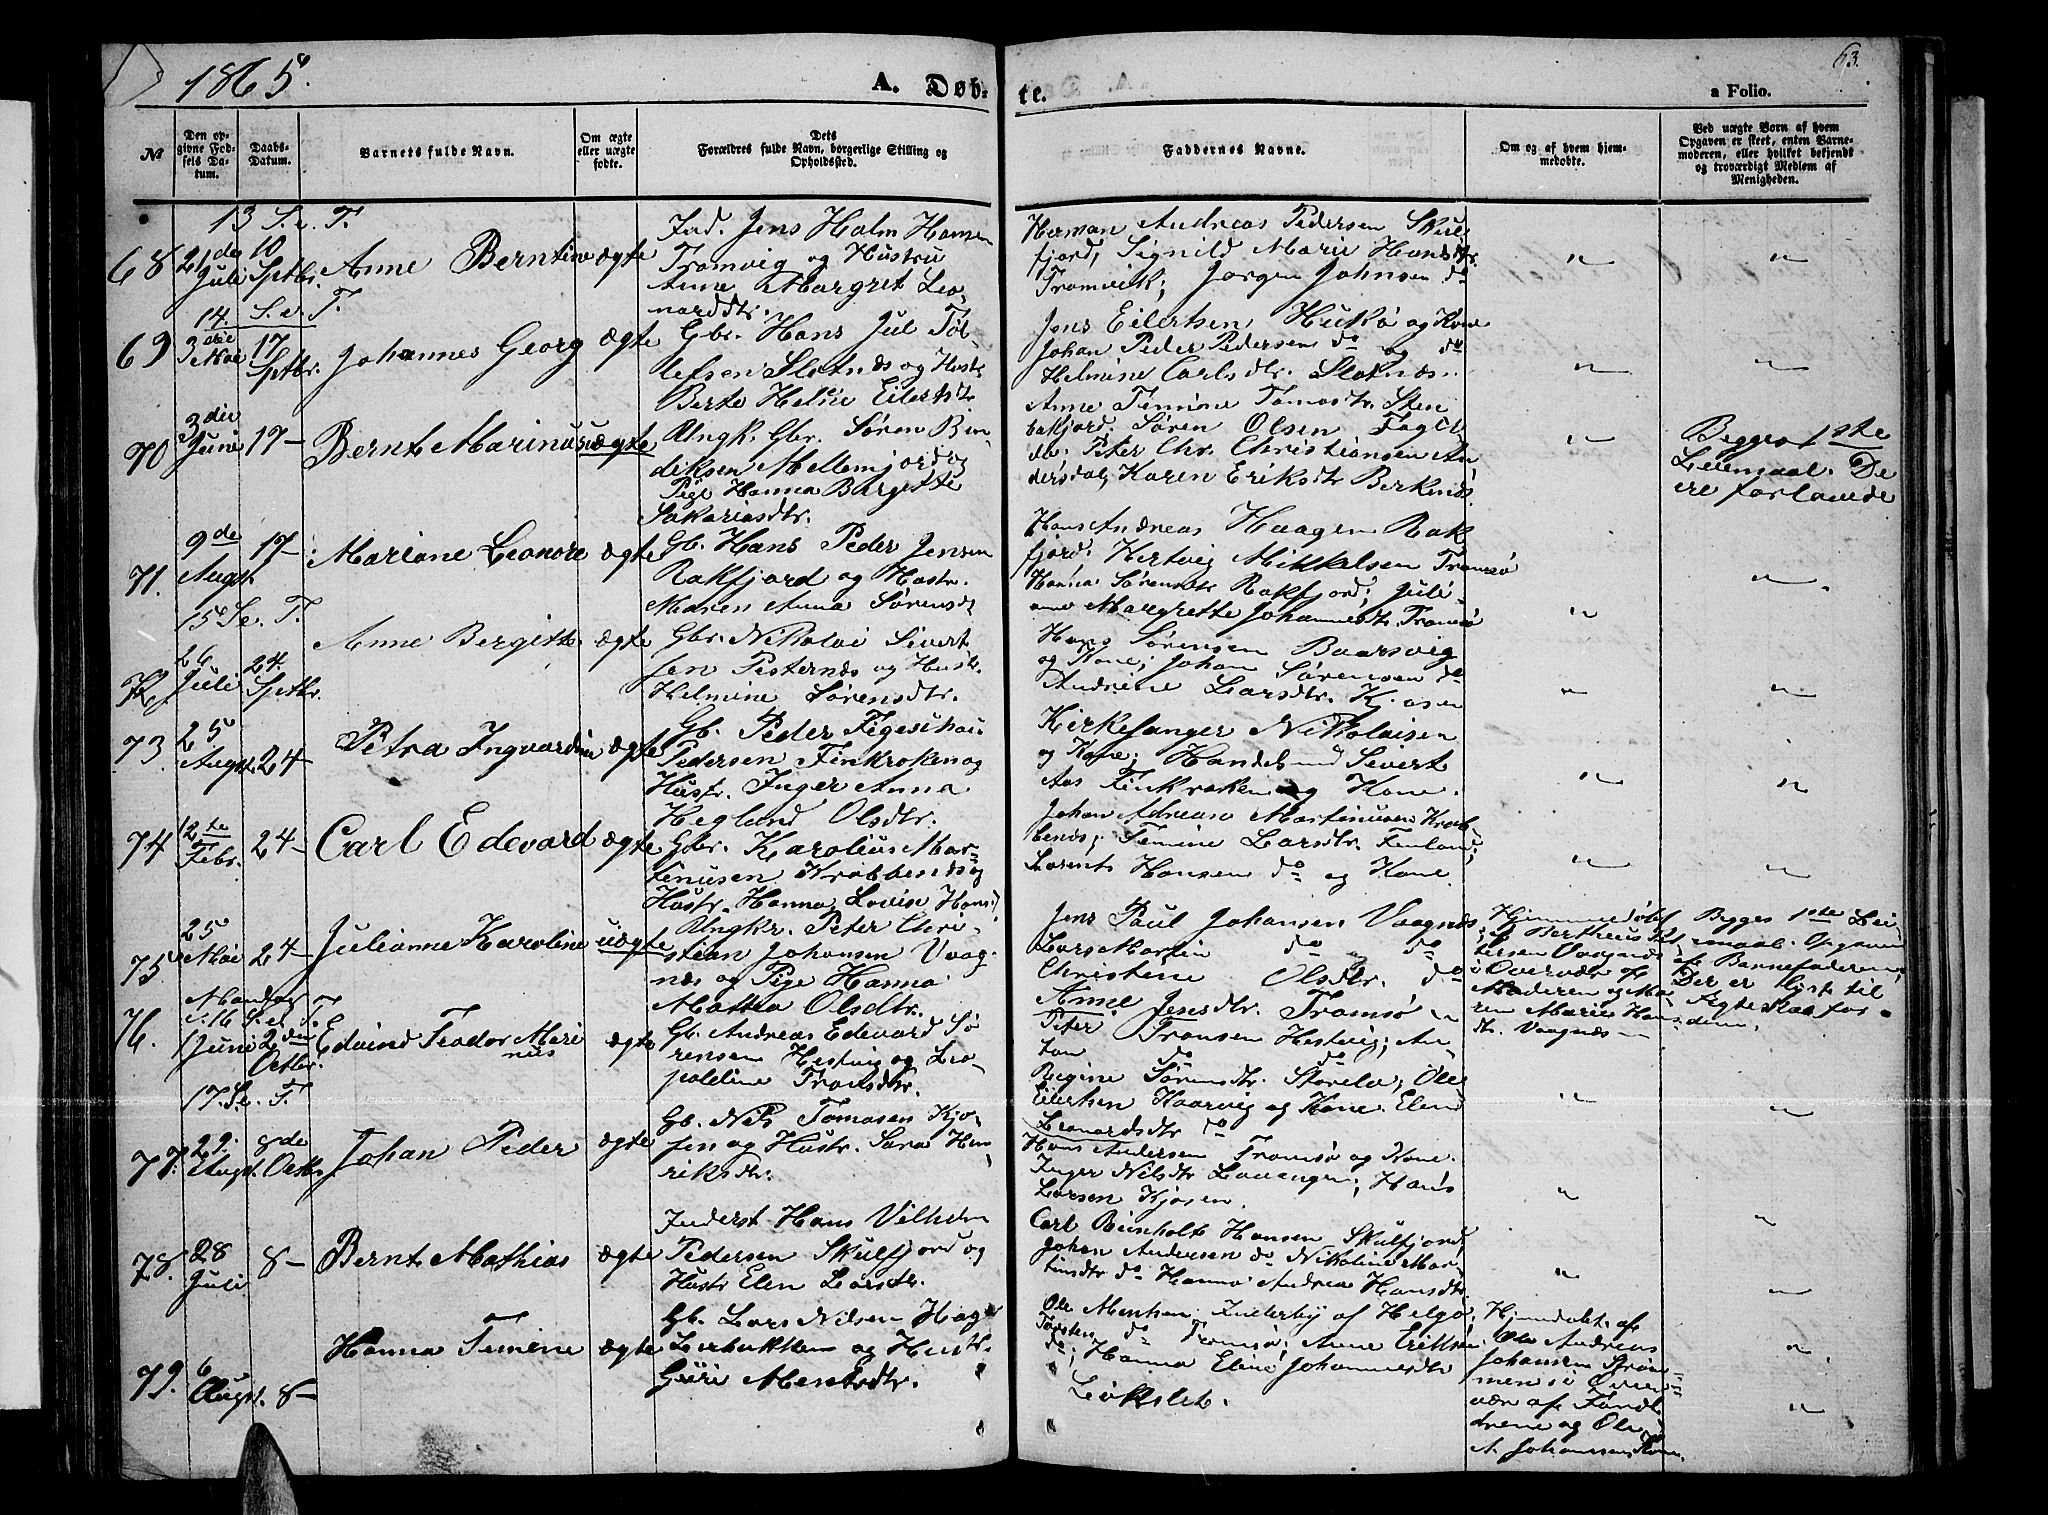 1865.
A. Døb-
te.
a Folio.
63.
№
Den op-
givne Fød-
sels Da-
tum.
Daabs-
Datum.
Barnets fulde Navn.
Om ægte
eller uægte
fødte.
Dets
Forældres fulde Navn, borgerlige Stilling og
Opholdssted.
Faddernes Navne.
Om og af hvem hjem-
medøbte.
Ved uægte Børn af hvem
Opgaven er skeet, enten Barne-
moderen, eller hvilket bekjendt
og troværdigt Medlem af
Menigheden.
13 S. e. T.
68
21de
Juli
10
Sptbr.
Anne Berntine
ægte
Ind. Jens Holm Hansen
Tromvig og Hustru
Anne Margret Leo-
narddtr.
Herman Andreas Pedersen Skul-
fjord, Signild Marie Hansdtr.
Tromvik; Jørgen Johnsen do
"
"
14. S. e. T.
69
3die
Mai
17
Sptbr.
Johannes Georg
ægte
Gbr. Hans Jul Tol-
lefsen Slotnæs og Hustr
Berte Heline Eilertsdtr
Jens Eilertsen og Kone
Johan Peder Pedersen do og do
Helmine Carlsdtr. Slotnæs.
"
"
70
3die
Juni
17-
Bernt Marinus
uægte
Ungk. Gbr. Søren Ben-
diksen Mellemjord og
Pige Hanna Bergitte
Sakariasdtr.
Anne Temine Tomasdtr. Sten
bakjord. Søren Olsen
do. Peter Chr. Christiansen An-
dersdal, Karen Eriksdtr Berkenæs
"
Begges 1ste
Leiemaal. De
ere forlovede
71.
9de
Augst
17-
Mariane Leonore
ægte
Gb. Hans Peder Jensen
Rakfjord og Hustr.
Maren Anna Sørensdtr
Hans Andreas Haagen Rak
fjord; Hertvig Mikkelsen Tromsø
Hanna Sørensdtr Rakfjord; Juli-
ane Margrette Johannesdtr. Tromsø
"
"
15 S. e. T.
72.
26
Juli
24.
Sptbr.
Anne Bergitte
ægte
Gbr. Nikolai Sivert
sen Pisternæs og Hustr.
Helmine Sørensdtr.
Hans Sørensen Baarsvig
og Kone; Johan Sørensen do
Andrine Larsdtr. Kjosen
"
"
73.
25
Augst.
24-
Petra Ingvardine
ægte
Gb. Peder Figeschou
Pedersen Finkroken og
Hustr. Inger Anna
Hegland Olsdtr.
Kirkesanger Nikolaisen
og Kone; Handelsmd Sivert
Aas Finkroken og Kone.
"
"
74
12te
Febr.
24-
Carl Edevard
ægte
Gbr. Karolius Mar-
tinusen Krabbenæs og
Hustr. Hanna Lovise Hansd
Johan Adreas Martinusen Krab-
benæs; Temine Larsdtr. Finland;
Lorents Hansen do og Kone
"
"
75
25
Mai
24-
Julianne Karoline
uægte
Ungkr. Peter Chri-
stian Johansen Vaag-
næs og Pige Hanna
Mattea Olsdtr.
Jens Paul Johansen Vaagnæs
Lars Martin do do
Christine Olsdtr. do
Anne Jensdtr. Tromsø "
Hjemmedøbt
af Bertheus Pet-
tersen Vaagnæs
i Overvær af
Moderen og Ma-
ren Marie Hans-
dtr. Vaagnæs-
Begges 1ste Lei-
maal. Opgaven
af Barnefaderen.
Der er lyst til
Ægteskab for
dem.
Mandag
f. 16 S. e. T.
76.
1
Juni
2den
Octbr.
Edvind Teodor Mari
nius
ægte
Gb. Andreas Edevard Sø
rensen Hestvig og Leo-
poldine Fransdtr.
Peter Fransen Hestvig; An-
ton do do
Regine Sørensdtr. Storelv; Ole
Eilertsen Kaarvig og Kone. Elen
Leonardsdtr do
"
"
17. S. e. T.
77.
29.
Augst.
8de
Octb.
Johan Peder
ægte
Gb. Nils Tomasen Kjo-
sen og Hustr. Sara Hen-
riksdtr.
Hans Andersen Tromsø og Kone.
Inger Nilsdtr Lavangen; Hans
Larsen Kjosen.
"
"
78.
28
Juli
8-
Bernt Mathias
ægte
Inderst Hans Vilhelm
Pedersen Skulfjord og
Hustr Elen Larsdtr.
Carl Reinholt Hansen Skulfjord,
Johan Andersen do Nikoline Mar-
tinsdtr do Hanna Andrea Hansdtr.
"
"
79.
6
Augst.
8-
Hanna Temine
ægte
Gb. Lars Nilsen Hage
Lerbakken og Hustr.
Guri Mentsdtr.
Ole Mentsen Inderby af Helgø;
Torsten do Tromsø; Anne Eriksen
do; Hanna Eline Johannesdtr
Leikslet.
Hjemdøbt. af
Ole Andreas
Johansen Strøm-
men i Over-
vær af Foræl-
drene og Ole
A. Johansens Kone.
"
"